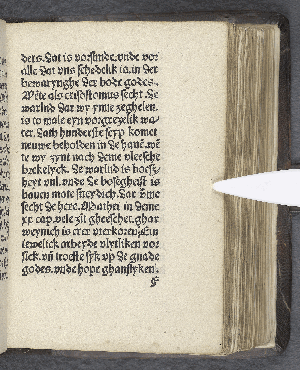 ders. Dat is vorsinde. vnde vor
alle dat vns schedelik is. in der
bewarynghe der bode godes.
Wēte als crisostomus secht. De
warlnd dar wy ynne zeghelen.
is to male eyn vorgreyelik wa
ter. Dath hunderste scyp komet
neuwe beholden in de hauē. wē
te wy synt nach deme vleesche
brekelyck. De warlnd is boesz
heyt vul. vnde De boszgheist is
bauen mate strydich. Dar vmme
secht de here. Mathei in deme
xx cap. vele zit gheeschet. ghar
weynich is erer vterkoren. Ein
iewelick arbeyde vlytliken vor
sick. vñ troeste syk vp de gnade
godes. vnde hope ghanslyken.